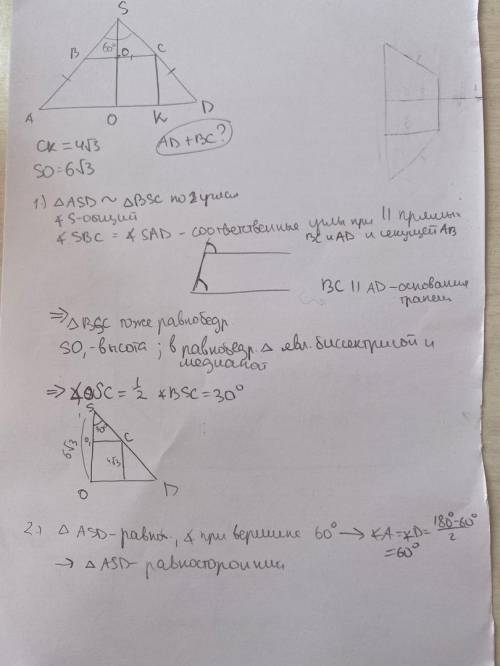 S
60°
B O₁ C
A O K D
CK = 4√3
SO = 6√3
AD + BC?
1) △ASD ~ △BSC по 2 углам
∢S - общий
∢SBC = ∢SAD - соответственные углы при || прямых
BC и AD и секущей AB
BC || AD - основания
трапец
⇒ △BSC тоже равнобедр
SO₁ - высота; в равнобедр. △ явл. биссектрисой и
медианой
⇒ ∢OSC = 1/2 ∢BSC = 30°
S
30°
6√3 O₁ C
4√3
O D
2) △ASD - равноб., ∢ при вершине 60° → ∢A = ∢D = (180° - 60°)/2
= 60°
→ △ASD - равносторонний